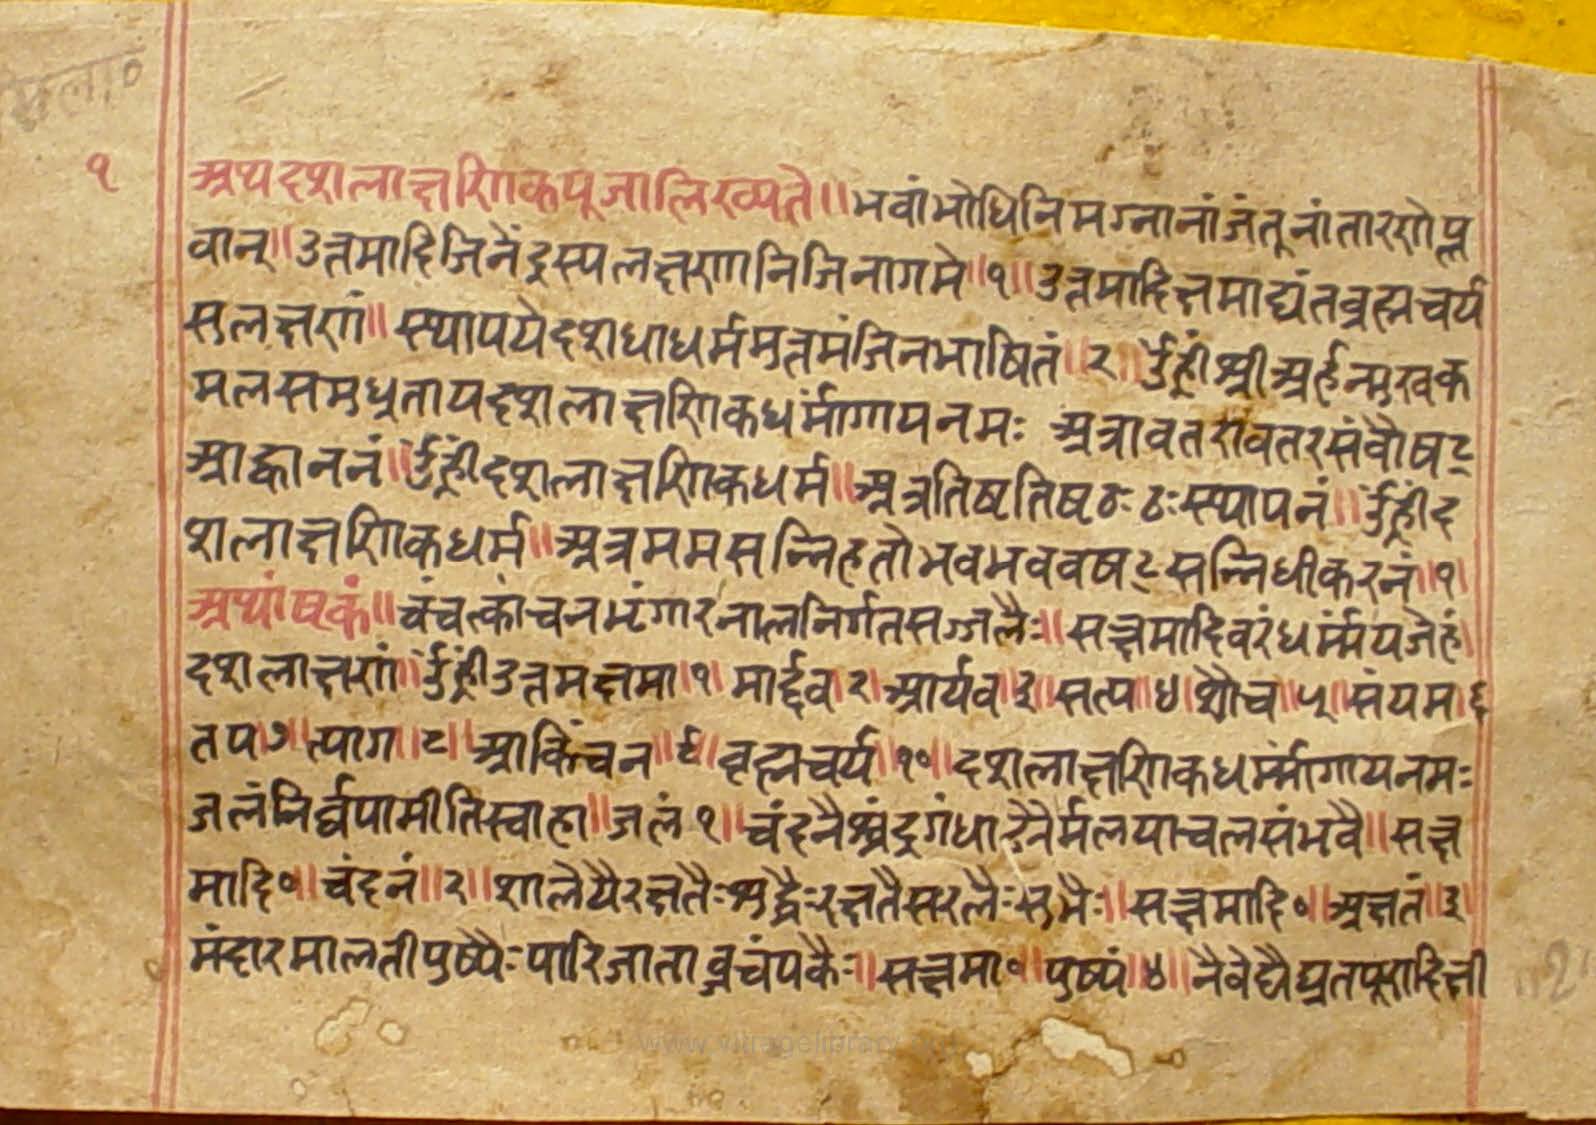 १
अथदशलाक्षणिकपूजालिख्यते॥भवांभोधिनिमग्नानांजंतूनांतारणेप्ल
वान्॥उत्तमादिजिनेंद्रस्यलक्षणानिजिनागमे॥१॥उत्तमादिक्षमाद्यंतव्रह्मचर्य
सुलक्षणं॥स्थापयेदशधाधर्ममुत्तमंजिनभाषितं॥२॥र्उंह्रींश्रीअर्हन्मुखक
मलसमुध्रुतायदशलाक्षणिकधर्म्मागायनमः अत्रावतरावतरसंवौषट्
आह्वाननं॥र्उंह्रींदशलाक्षणिकधर्म॥अत्रतिष्टतिष्टठःठःस्थापनं॥र्उंह्रींद
शलाक्षणिकधर्म॥अत्रममसन्निहतोभवभववषट्सन्निधीकरनं॥१॥
अथांष्टकं॥चंचत्कांचनभृंगारनालनिर्गतसज्जलैः॥सत्क्षमादिवरंधर्म्मंयजेहं॥
दशलाक्षणं॥र्उंह्रींउत्तमक्षमा॥१॥मार्द्दव॥२॥आर्यव॥३॥सत्य॥४॥शौच॥५॥संयम॥६
तप॥७॥त्याग॥८॥आकिंचन॥९॥वृह्मचर्य॥१०॥दशलाक्षणिकधर्म्मागायनमः
जलंनिर्व्वपामीतिस्वाहा॥जलं१॥चंदनैश्चंद्रगंधाढैर्नैर्मलयाचलसंभवै॥सत्क्ष
मादि०॥चंदनं॥२॥शालेयैरक्षतैःशुद्धैःरक्षतैसरलैःसुभैः॥सत्क्षमादि०॥अक्षतं॥३॥
मंदारमालतीपुष्पैःपारिजाताव्रचंपकैः॥सत्क्षमा०॥पुष्पं॥४॥नैवेद्यैघ्रतपूरादिक्षी
www.vitragelibrary.org